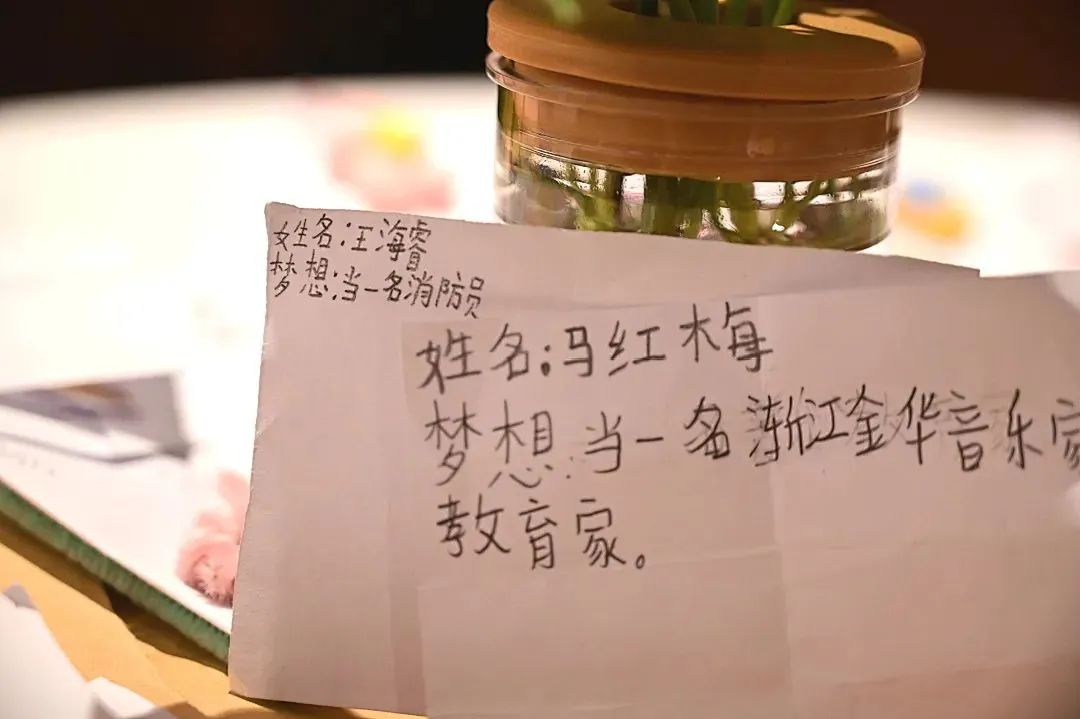 姓名:王海睿
梦想:当一名消防员
姓名:冯红梅
梦想:当一名浙江金华音乐家
教育家。